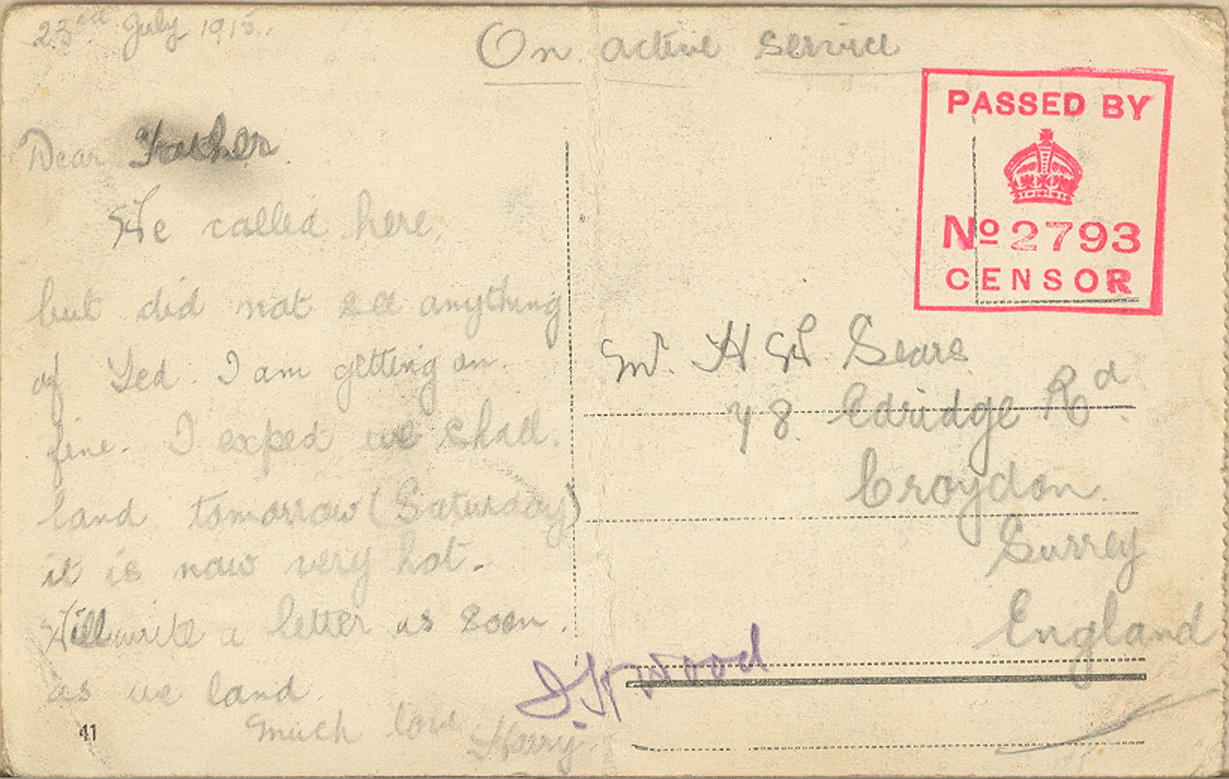 23rd July 1915.
On active service
PASSED BY
No 2793
CENSOR
Dear Father
We called here,
but did not see anything
of Ted. I am getting on.
fine. I expect we shall.
land tomorrow (Saturday)
it is now very hot.
Will write a letter as soon.
as we land
much love Harry
Mr. H W Sears
78. Edridge Rd.
Croydon.
Surrey
England
Wood
41